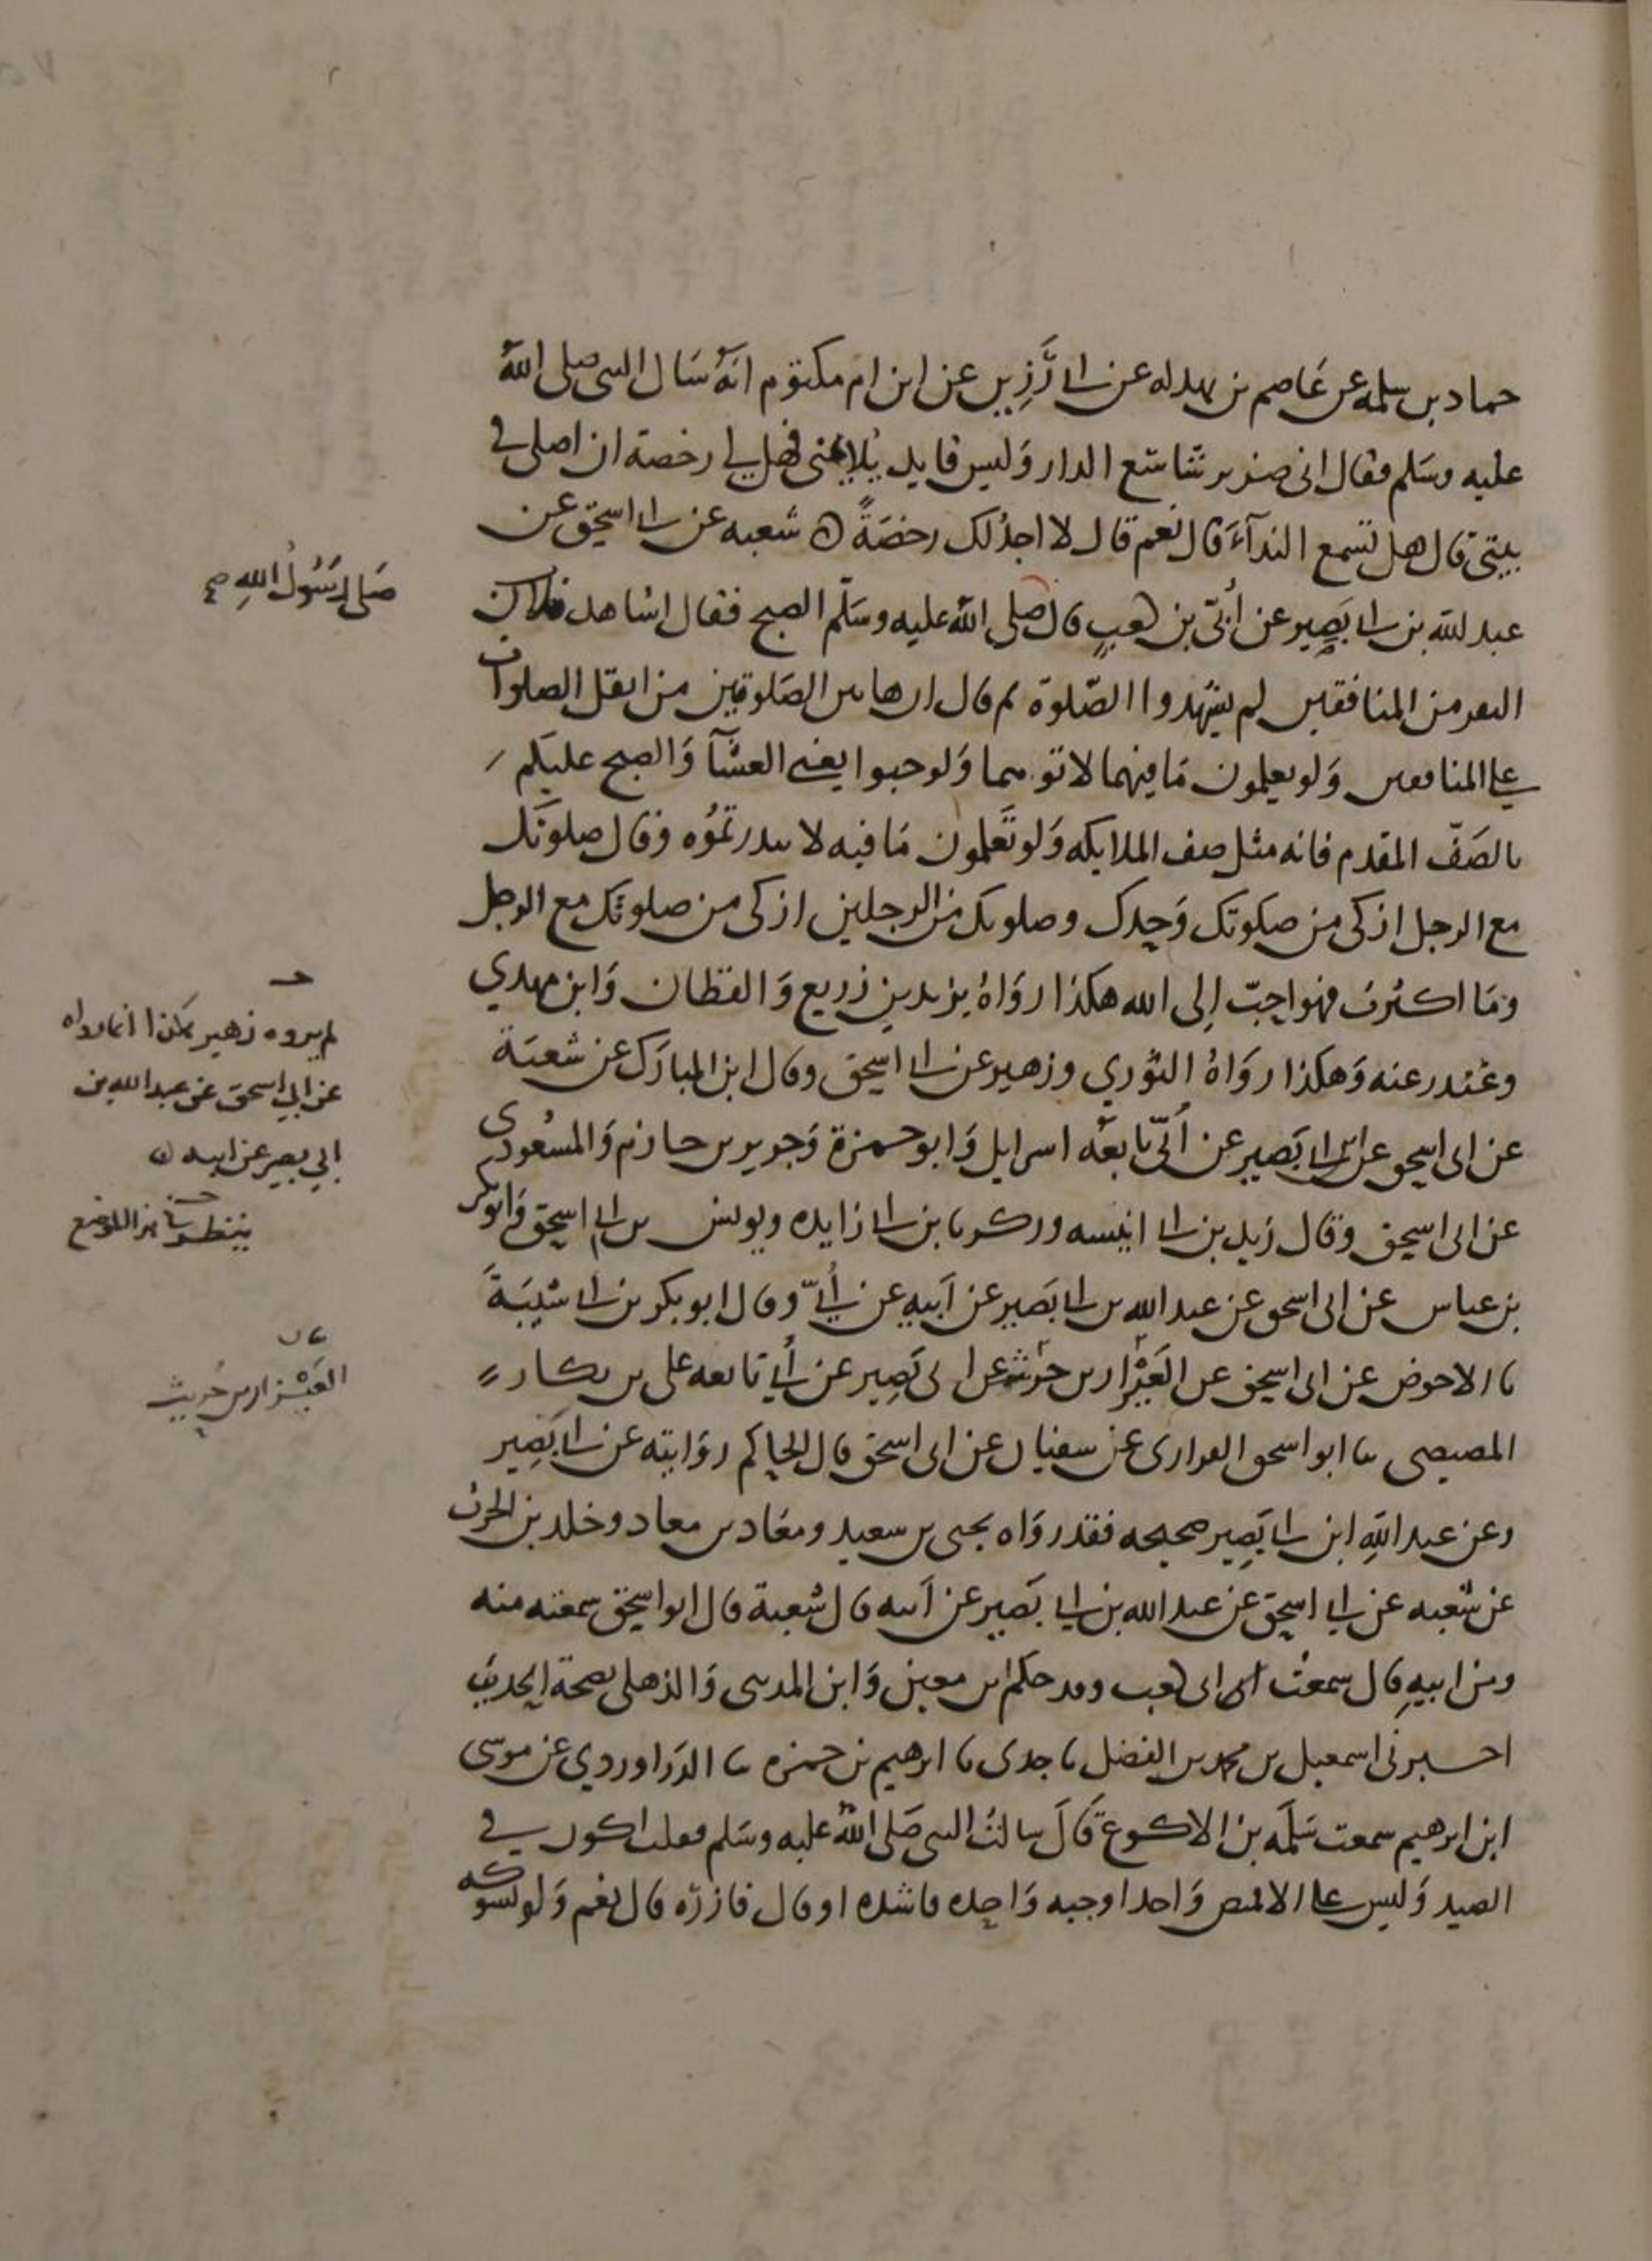 حماد بن سلمه عن عَاصم بن بهدله عن ابى رَّزِين عن ابن ام مكتوم انهُ سَال النبى صلى اللهُ
عليه وسَلم فقال انى ضرير شاسَع الدار وَليس قايد يُلايمنى فهل لي رخصة ان اصلى في
بيتى قال هل تسمع الندآءَ قال نعم قال لا اجدُ لك رخصَةً ه شعبه عن ابى اسحٰق عن
عبد الله بن ابى بَصِير عن أُبَىّ بن كعبٍ قال صلى اللهُ عليه وسَلّم الصبح فقال اشاهد فلان
صَلى رَسُولُ اللهِ صح
النفر من المنافقين لم يشهدوا الصّلوة ثم قال ان هاتين الصَلوتين من اثقل الصلوات
على المنافقين وَلو يعلمون مَا فيهما لاتوهما وَلو حبوا يعنى العشآ وَالصبح عليكم
بالصَفّ المقدم فانه مثل صف الملايكه وَلو تَعلمون مَا فيه لابتدرتمُوه وقال صلوتك
مع الرجل ازكى من صلوتك وَحدك وصلوتك من الرجلين ازكى من صلوتك مع الرجل
وَمَا اكثرت فهو احبّ إلى الله هكذا روَاهُ يزيد بن زريع وَالقطان وَابن مهدي
وغندر عنه وَهكذا روَاهُ الثوري وزهير عن ابى اسحٰق وقال ابن المبارَك عن شعبَة
لم يروه زهير هكذا انما رواه
عن ابي اسحق عن عبد الله بن
ابي بصير عن ابيه ه
عن ابى اسحق عن ابى بَصير عن أُبَىّ تابعَه اسرايل وَابو حمزة وَجرير بن حازم وَالمسْعُودى
عن ابى اسحٰق وقال زيد بن ابى انيسه وزكريا بن ابى زايده ويونس بن ابى اسحٰق وَابو بكر
بن عياس عن ابى اسحق عن عبد الله بن ابى بَصير عن اَبيه عن أُبَىّ وقال ابو بكر بن ابى شَيبَةَ
ثنا الاحوص عن ابى اسحٰق عن العَيْزار بن حرَيث عن ابى بَصِير عن أُبي تابعه على بن بكار
العَيْزار بن حُريث
المصيصى ثنا ابو اسحق الفزارى عن سفيان عن ابى اسحٰق قال الحاكم روَايته عن ابى بَصِير
وعن عبد اللهِ ابن ابى بَصِير صحيحه فقد روَاه يحيى بن سعيد ومعَاد بن معاد وخلد بن الحرث
عن شعبه عن ابى اسحٰق عن عبد الله بن ابى بَصير عن اَبيه قال شعبة قال ابو اسحٰق سمعته منه
ومن ابيهِ قال سمعتُ ابى بن كعب وقد حكم ابن معين وَابن المدينى وَالذهلى بصحة الحديث
اخبرنى اسمعيل بن محمد بن الفضل ثنا جدى ثنا ابرهيم بن حمزه ثنا الدَراوردي عن موسى
ابن ابرهيم سمعت سَلمَه بن الاكوع قَالَ سالتُ النبى صَلى اللهُ عليه وسَلم فقلت اكون في
الصيد وَليس على الا قميص وَاحد او جبه وَاحده فاشده او قال فازرّه قال نعم وَلو بشوكه